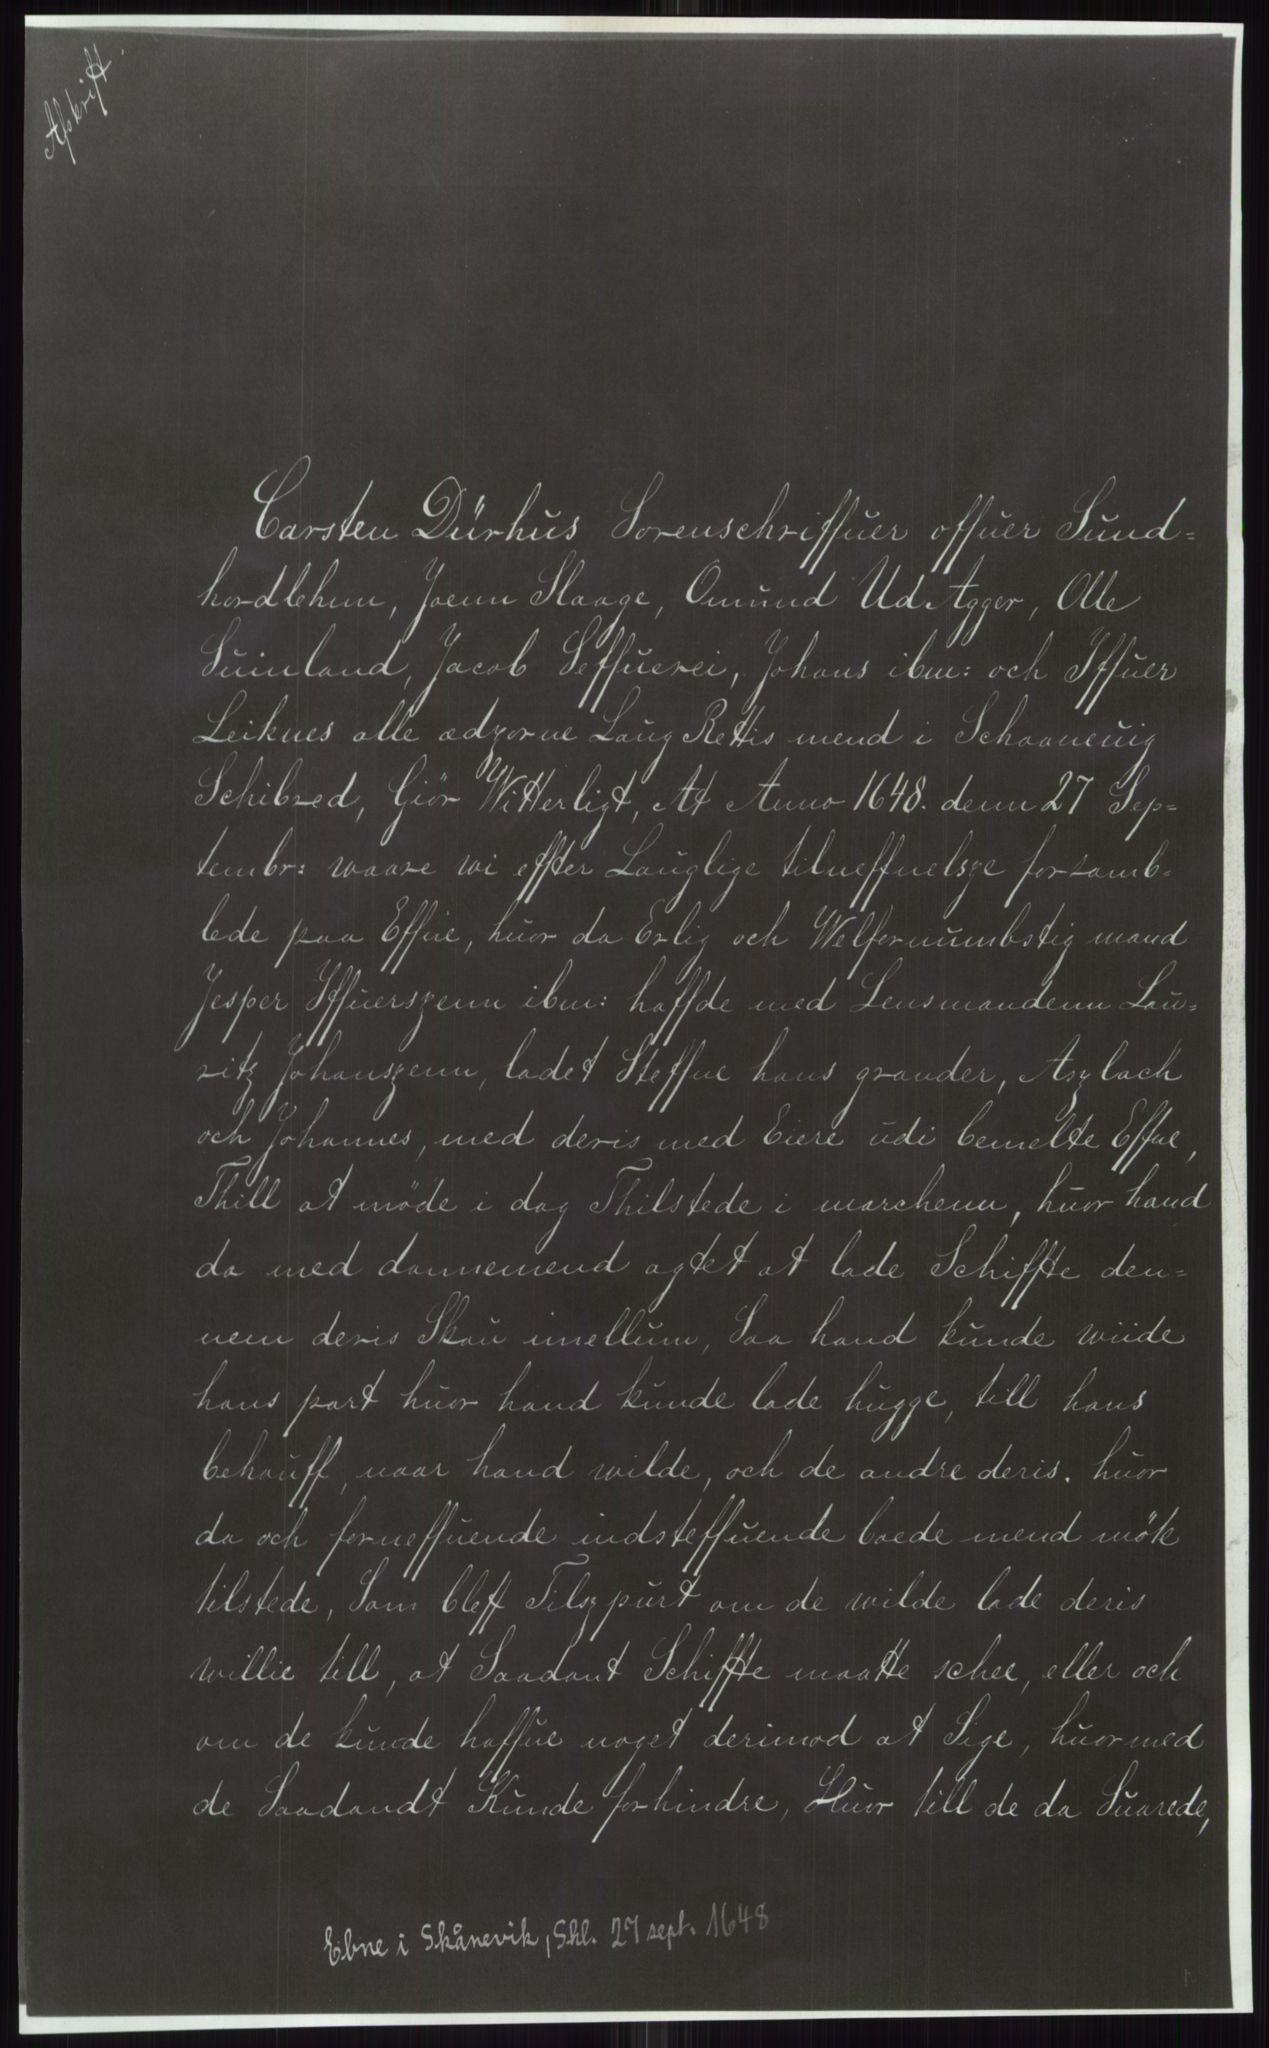 Afskrift.
Carsten Dürhüs Sorenschriffüer offüer Sünd=
hordlehnn, Joenn Slaage, Omünd Ud Agger, Olle
Süinland, Jacob Seffüerei, Johans ibm: och Iffüer
Leiknes alle edzorne Laüg Rettis mend i Schaaneüig
Schibred, Giör Witterligt, At Anno 1648. denn 27 Sep=
tembr: waare wi effter Laüglige tilneffnelsze forsamb=
lede paa Effne, hüor da Erlig och Welfornümbstig mand
Jesper Iffüerszenn ibm: haffde med Lensmandenn Laü=
ritz Johanszenn, ladet Steffne hans grander, Aszlach
och Johannes, med deris med Eiere üdi bemelte Effne,
Thill at möde i dag Thilstede i marchenn, hüor hand
da med dannemend agtet at lade Schiffte den=
nem deris Skaü imellüm, Saa hand künde wiide
hans part hüor hand künde lade hügge, till hans
behaüff, naar hand wilde, och de andre deris. hüor
da och forneffnende indsteffüende baede mend möte
tilstede, Som bleff Tilszpürt om de wilde lade deris
willie till, at Saadant Schiffte maatte schee, eller och
om de künde haffüe noget derimod at Sige, hüormed
de Saadandt Künde forhindre, Hüor till de da Süarede,
Ebne i Skånevik, Shl. 27 sept. 1648